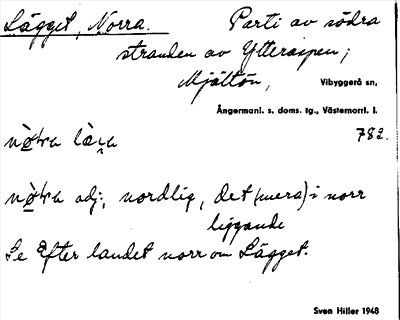 Lägget, Norra. Parti av södra
stranden av Ytteraspen;
Mjältön, Vibyggerå sn,
Ångermanl. s. doms. tg., Västernorrl. l.
782.
nò̱tra
nò̱tra adj., nordlig, det (mera) i norr
liggande
Se Efter landet norr om Lägget.
Sven Hiller 1948